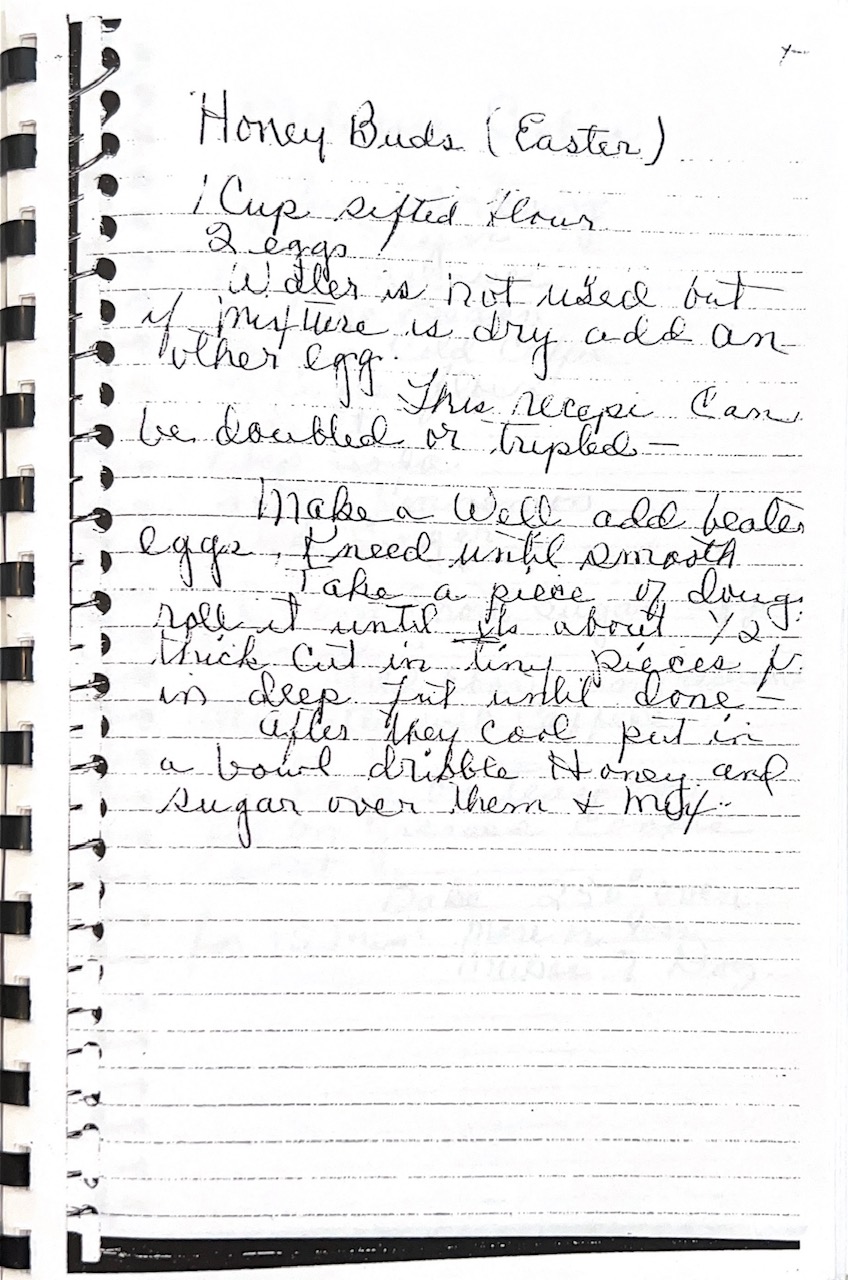 Honey Buds (Easter)
1 Cup sifted flour
2 eggs
Water is not used but
if mixture is dry add an
other egg.
This recepi Can
be doubled or tripled —
Make a Well add beate
eggs. Kneed until smooth
Take a piece of doug
roll it until its about 1/2
thick Cut in tiny pieces
in deep fat until done —
After they cool put in
a bowl dribble Honey and
sugar over them + mix.